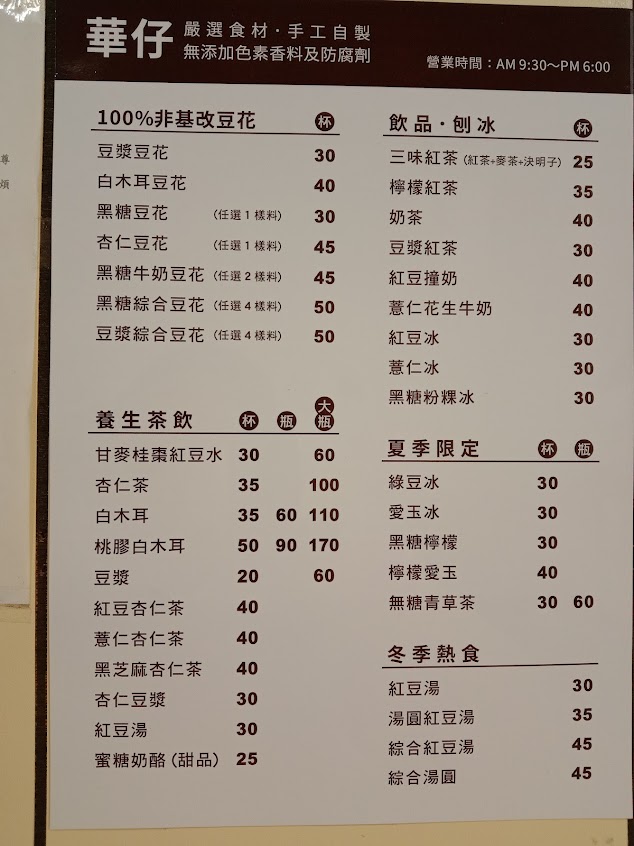 華仔
嚴選食材·手工自製
無添加色素香料及防腐劑
營業時間：AM 9:30～PM 6:00
尊
煩
100%非基改豆花 杯
豆漿豆花 30
白木耳豆花 40
黑糖豆花 (任選1樣料) 30
杏仁豆花 (任選1樣料) 45
黑糖牛奶豆花 (任選2樣料) 45
黑糖綜合豆花 (任選4樣料) 50
豆漿綜合豆花 (任選4樣料) 50
養生茶飲 杯 瓶 大瓶
甘麥桂棗紅豆水 30 60
杏仁茶 35 100
白木耳 35 60 110
桃膠白木耳 50 90 170
豆漿 20 60
紅豆杏仁茶 40
薏仁杏仁茶 40
黑芝麻杏仁茶 40
杏仁豆漿 30
紅豆湯 30
蜜糖奶酪(甜品) 25
飲品·刨冰 杯
三味紅茶(紅茶+麥茶+決明子) 25
檸檬紅茶 35
奶茶 40
豆漿紅茶 30
紅豆撞奶 40
薏仁花生牛奶 40
紅豆冰 30
薏仁冰 30
黑糖粉粿冰 30
夏季限定 杯 瓶
綠豆冰 30
愛玉冰 30
黑糖檸檬 30
檸檬愛玉 40
無糖青草茶 30 60
冬季熱食
紅豆湯 30
湯圓紅豆湯 35
綜合紅豆湯 45
綜合湯圓 45